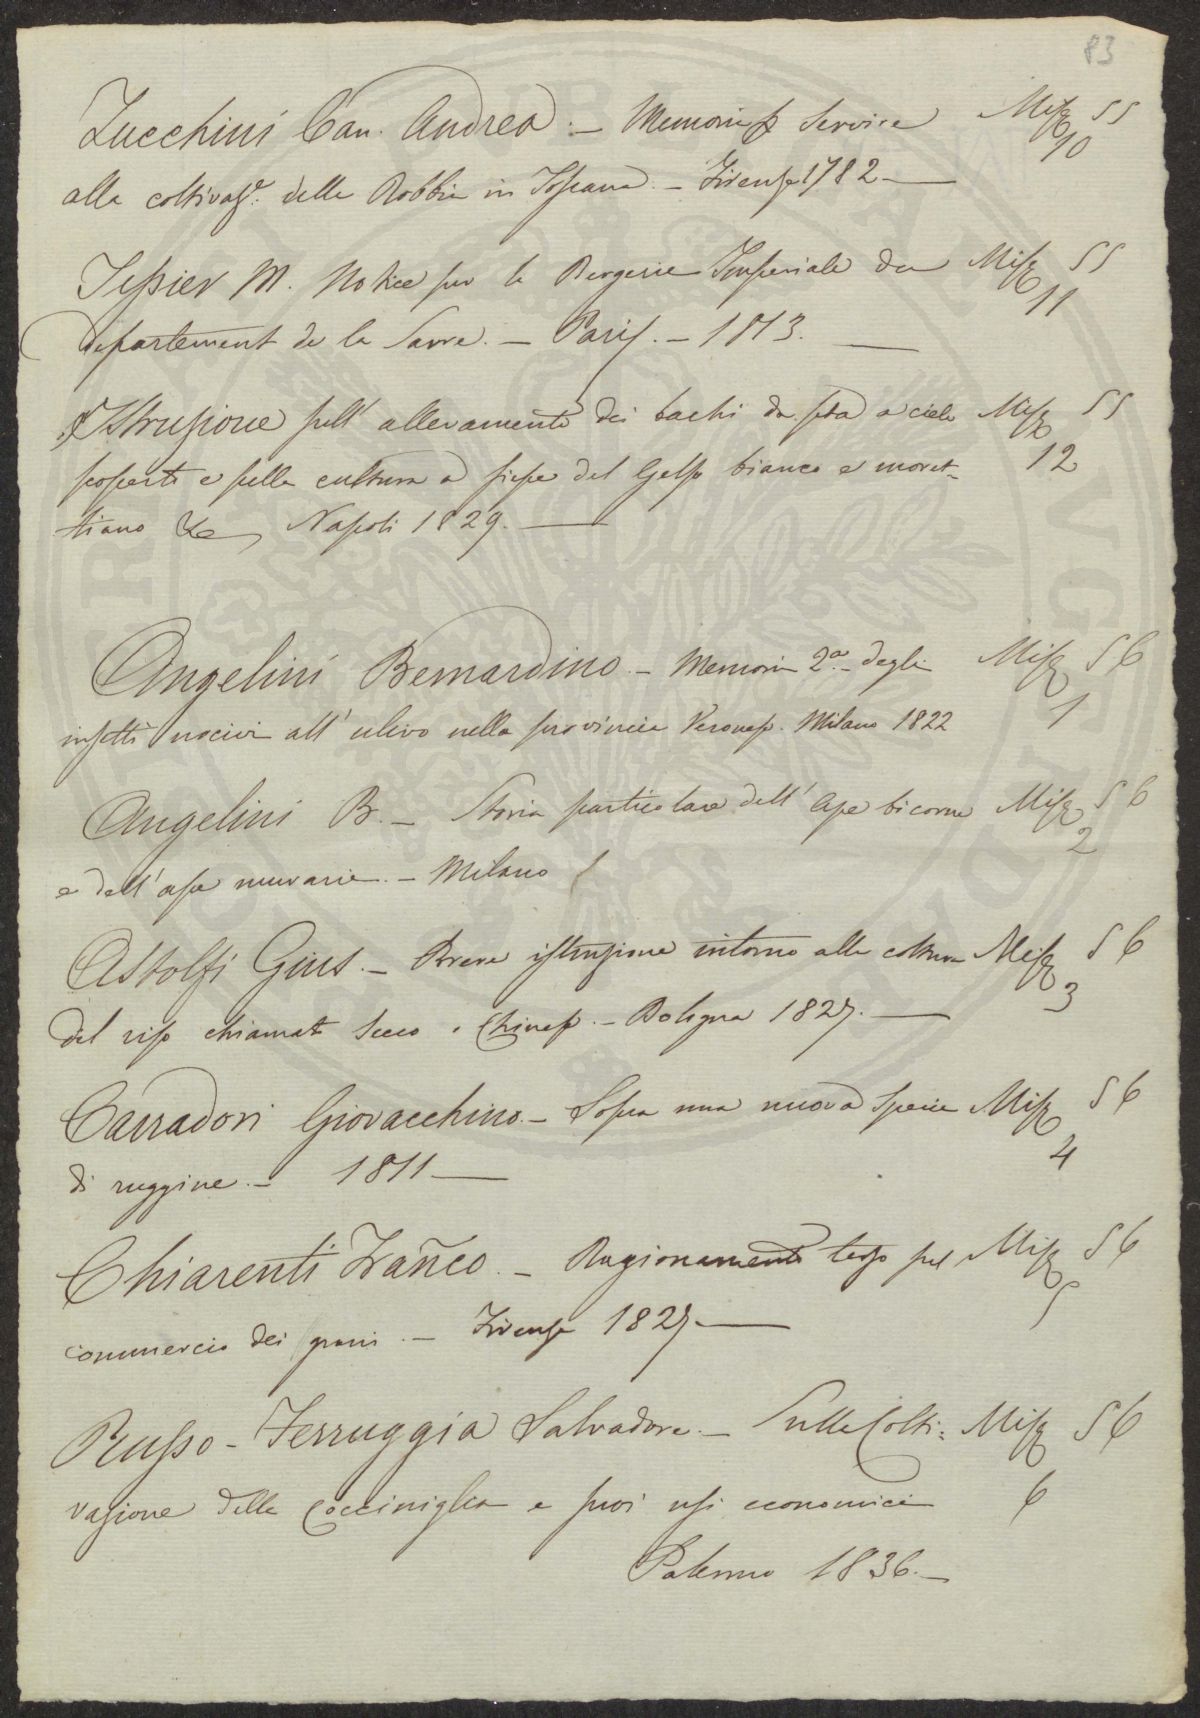 83
Zucchini Can. Andrea. - Memoria p. servire Misz 55
alla coltivaz.e della Robbia in Toscana. - Firenze 1782 — 10
Tessier M. Notice sur la Bergerie Imperiale du Misz 55
departement de la Sarre. - Paris. - 1813. — 11
Istruzione sull' allevamento dei bachi da seta a cielo Misz 55
scoperto e sulla cultura a siepe del Gelso bianco e moret- 12
tiano &c, Napoli 1829. —
Angelini Bernardino. - Memoria 2.a - degli Misz 56
insetti nocivi all' ulivo nella provincia Veronese. Milano 1822 1
Angelini B. - Storia particolare dell' Ape bicorne Misz 56
e dell' ape muraria. - Milano 2
Astolfi Gius. - Breve istruzione intorno alla coltura Misz 56
del riso chiamato secco o Chinese. - Bologna 1827. — 3
Carradori Giovacchino. - Sopra una nuova specie Misz 56
di ruggine. - 1811 — 4
Chiarenti Franco. - Ragionamento terzo sul Misz 56
commercio dei grani. - Firenze 1827. — 5
Russo-Ferruggia Salvadore. - Sulla Colti= Misz 56
vazione della Cocciniglia e suoi usi economici 6
Palermo 1836. -